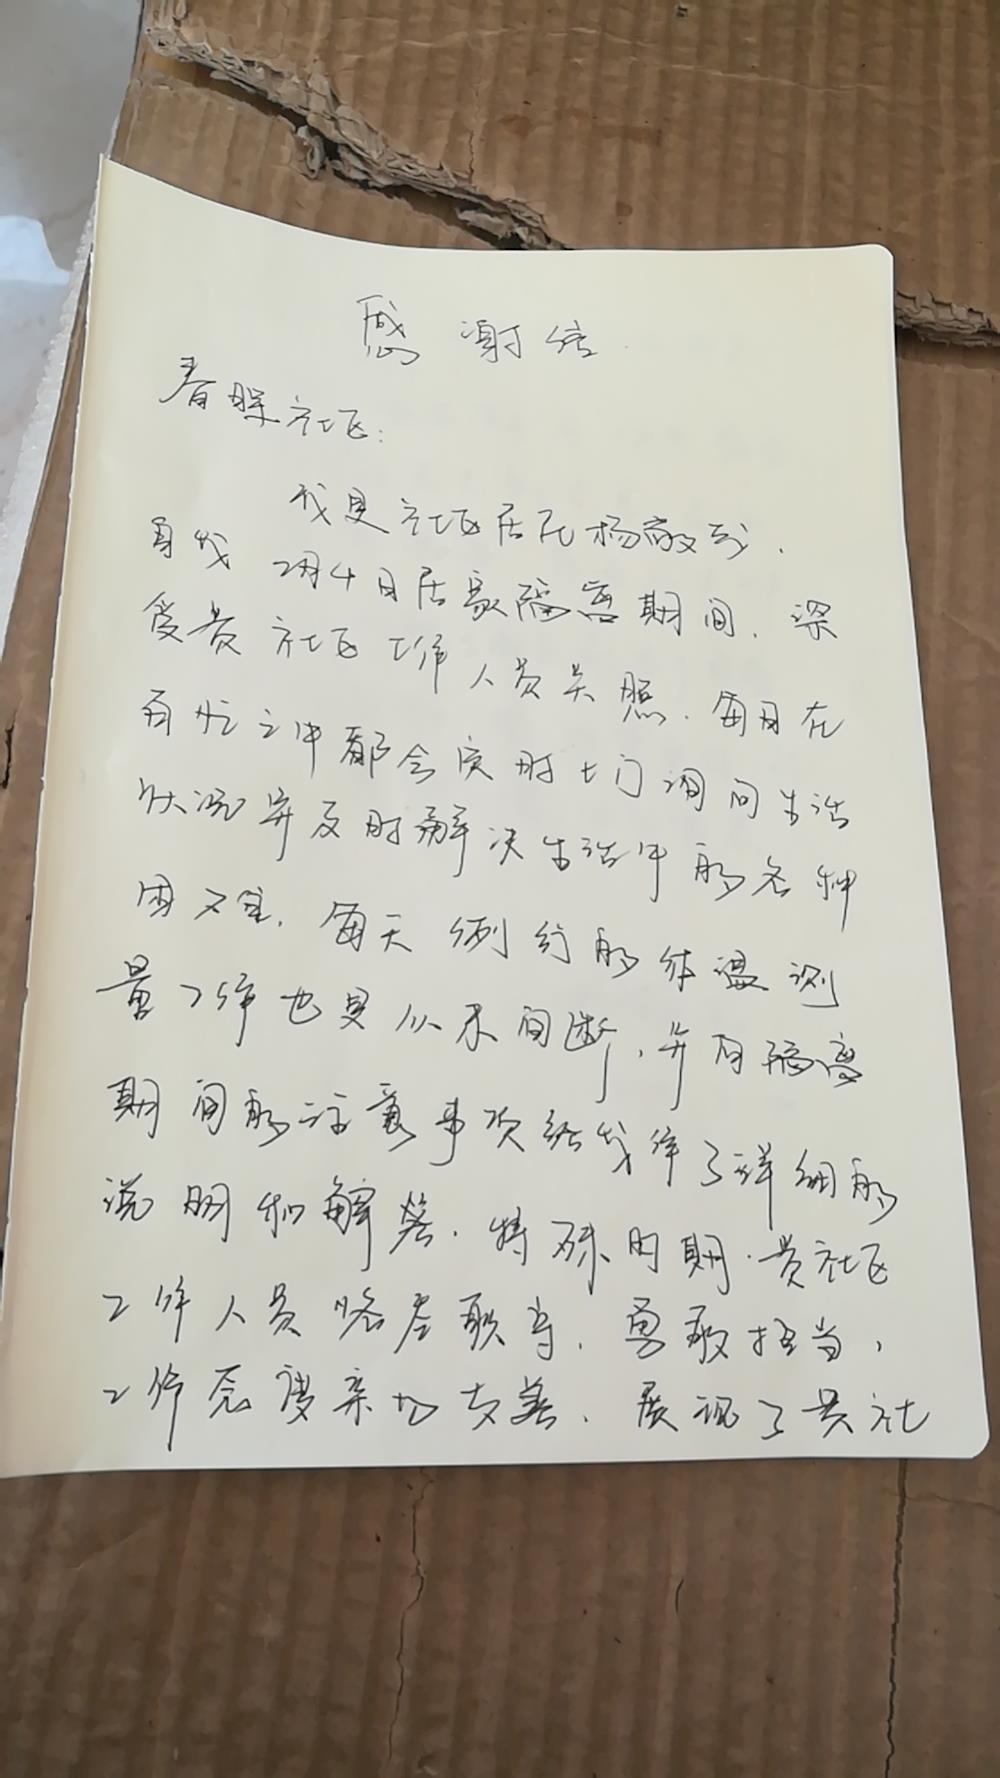 感谢信
春深社区：
我是社区居民杨敬
自我2月4日居家隔离期间，深
受贵社区工作人员关照．每日在
百忙之中都会定时上门询问生活
状况并及时解决生活中的各种
困难．每天例行的体温测
量工作也是从未间断，并有隔离
期间的注意事项给我作了详细的
说明和解答．特殊时期．贵社区
工作人员恪尽职守．勇敢担当，
工作态度亲切友善．展现了贵社